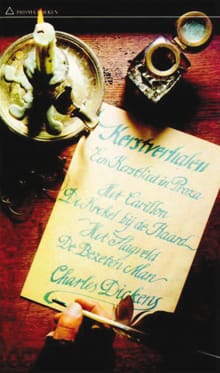 PRISMA BOEKEN
Kerstverhalen
Een Kerstlied in Proza
Het Carillon
De Krekel bij de Haard
Het Slagveld
De Bezeten Man
Charles Dickens